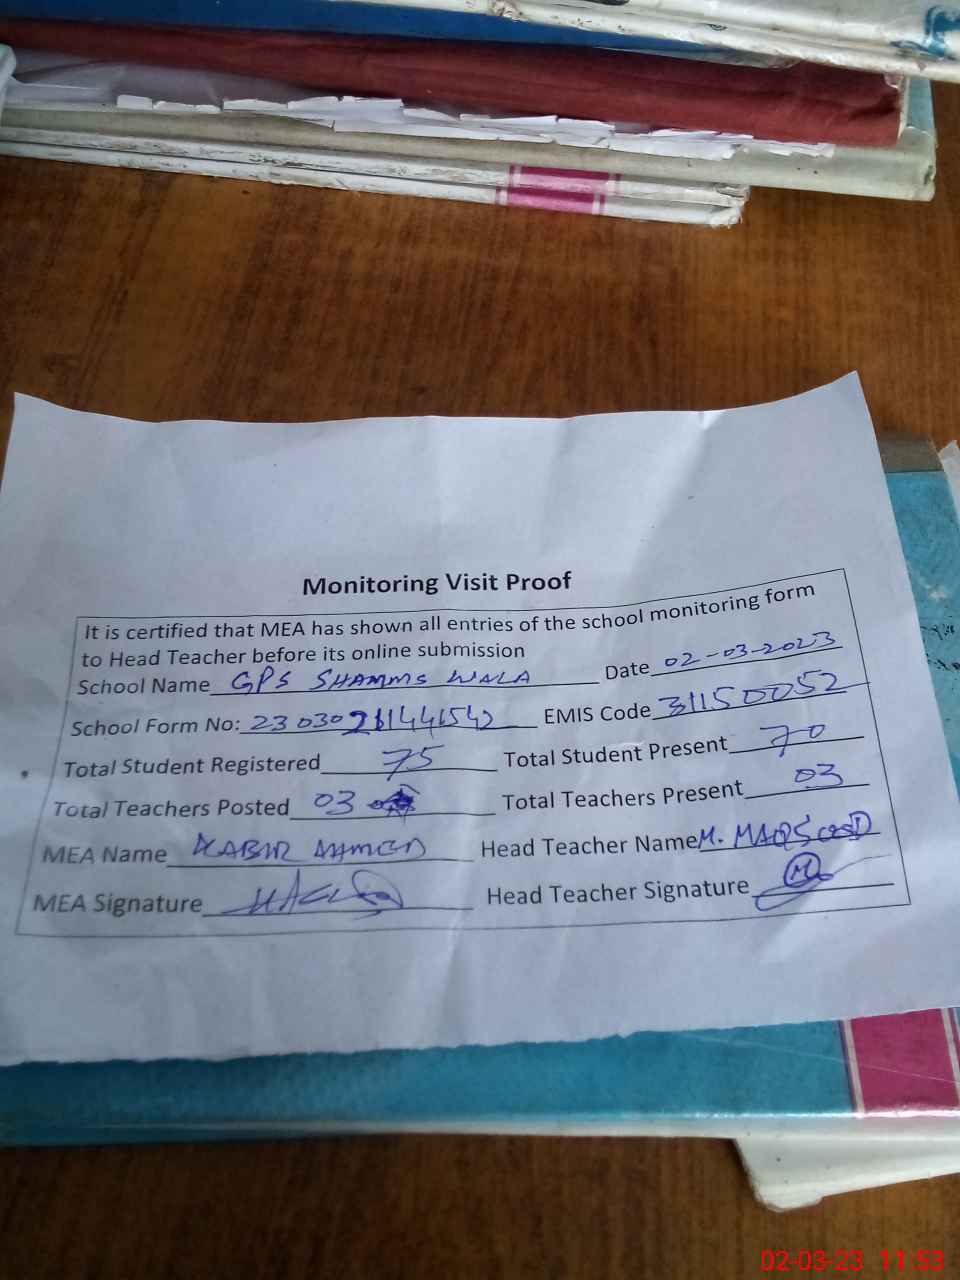 Monitoring Visit Proof
It is certified that MEA has shown all entries of the school monitoring form
to Head Teacher before its online submission
School Name GPS SHAMMS WALA Date 02-03-2023
School Form No: EMIS Code 31150052
Total Student Registered 75 Total Student Present 70
Total Teachers Posted 03 Total Teachers Present 03
MEA Name KABIR AHMED Head Teacher Name M. MAQSOOD
MEA Signature Head Teacher Signature M
02-03-23 11:53